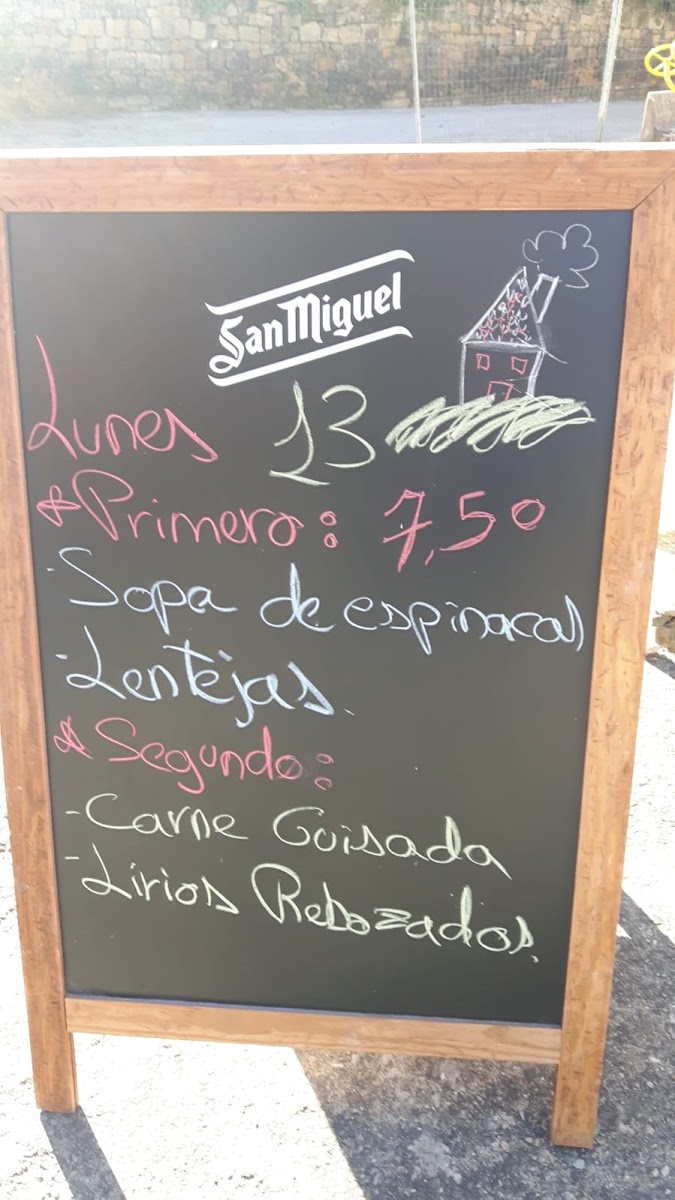 San Miguel
Lunes 13
Primero: 7,50
-Sopa de espinacas
-Lentejas.
Segundo:
-Carne Guisada
-Lirios Rebozados.